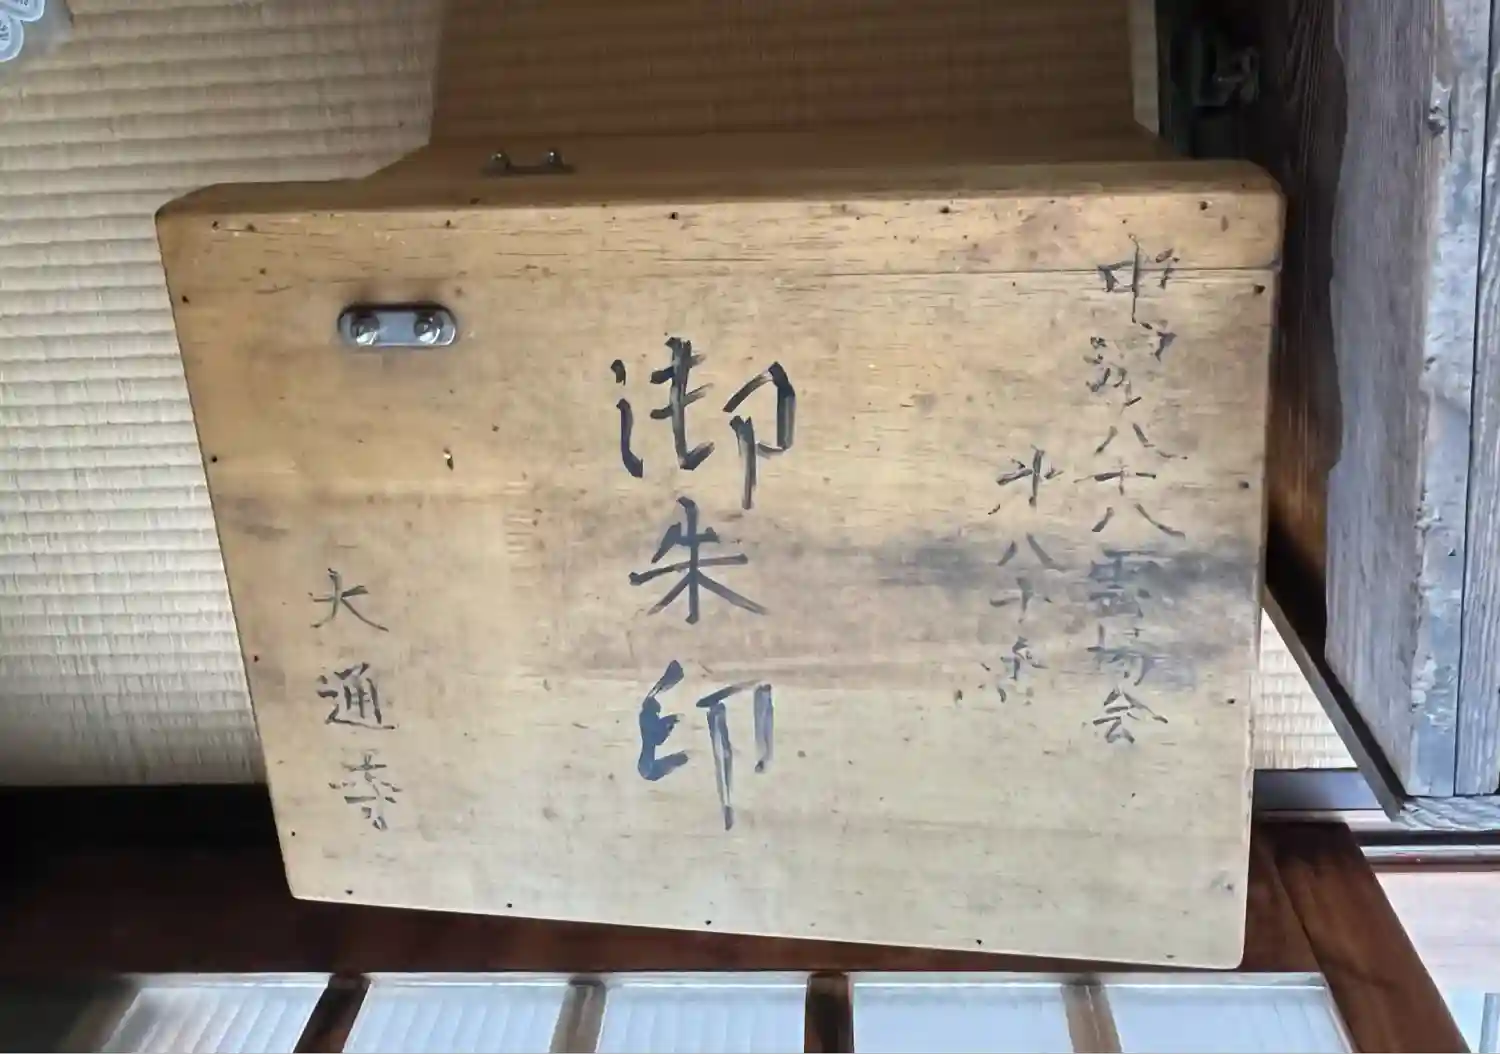 中濃八十八霊場会
第八十番
御朱印
大通寺